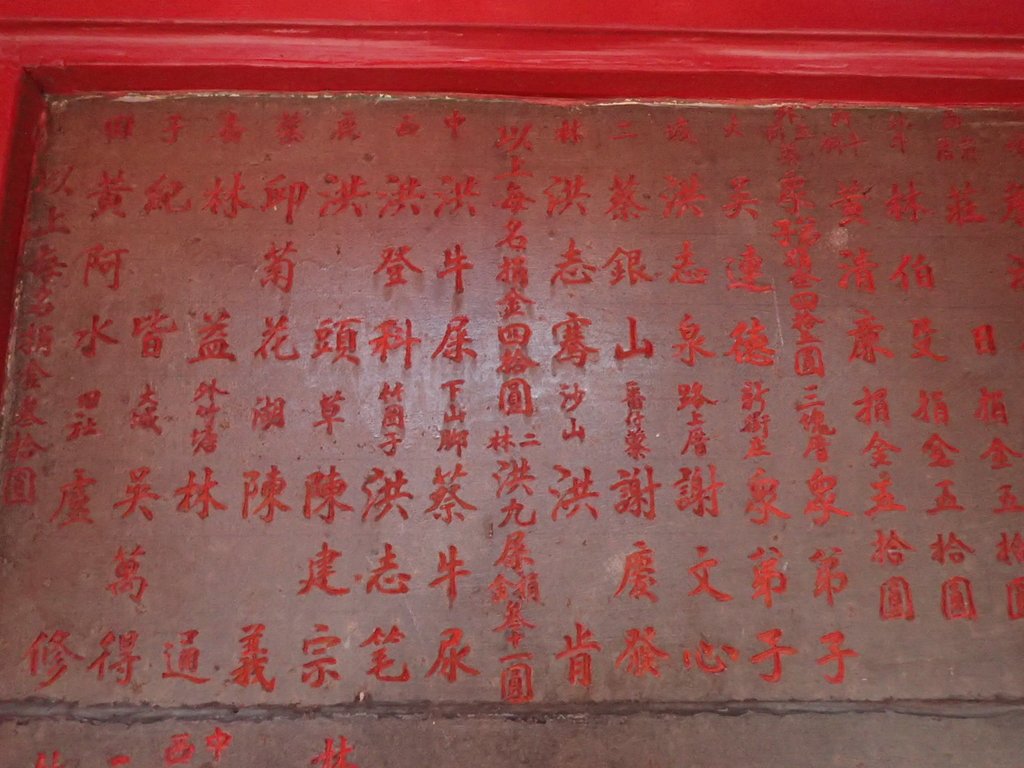 莊日捐金五拾圓
林伯殳捐金五拾圓
黃清康捐金五拾圓
三塊厝眾弟子
大吳連德眾弟子
城洪志泉路上厝謝文心
二蔡銀山番仔寮謝慶發
林洪志騫沙山洪肯
以上每名捐金四拾圓二林洪九屎捐金叁十一圓
中洪牛屎下山脚蔡牛尿
西洪登科竹圍子洪志笔
洪頭草陳建宗
邱菊花湖陳義
林益外竹塘林通
子紀皆大城吳萬得
黃阿水盧修
以上每名捐金叁拾圓
林
中西